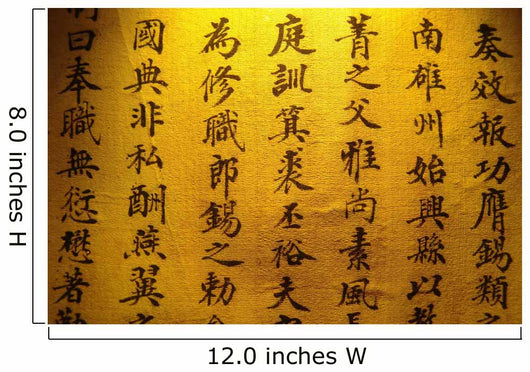 奏效報功膺錫類之
南雄州始興縣以
菁之父雅尚素風長
庭訓箕裘丕裕夫
為修職郎錫之勅
國典非私酬燕翼之
制曰奉職無愆懋著勤
8.0 inches H
12.0 inches W